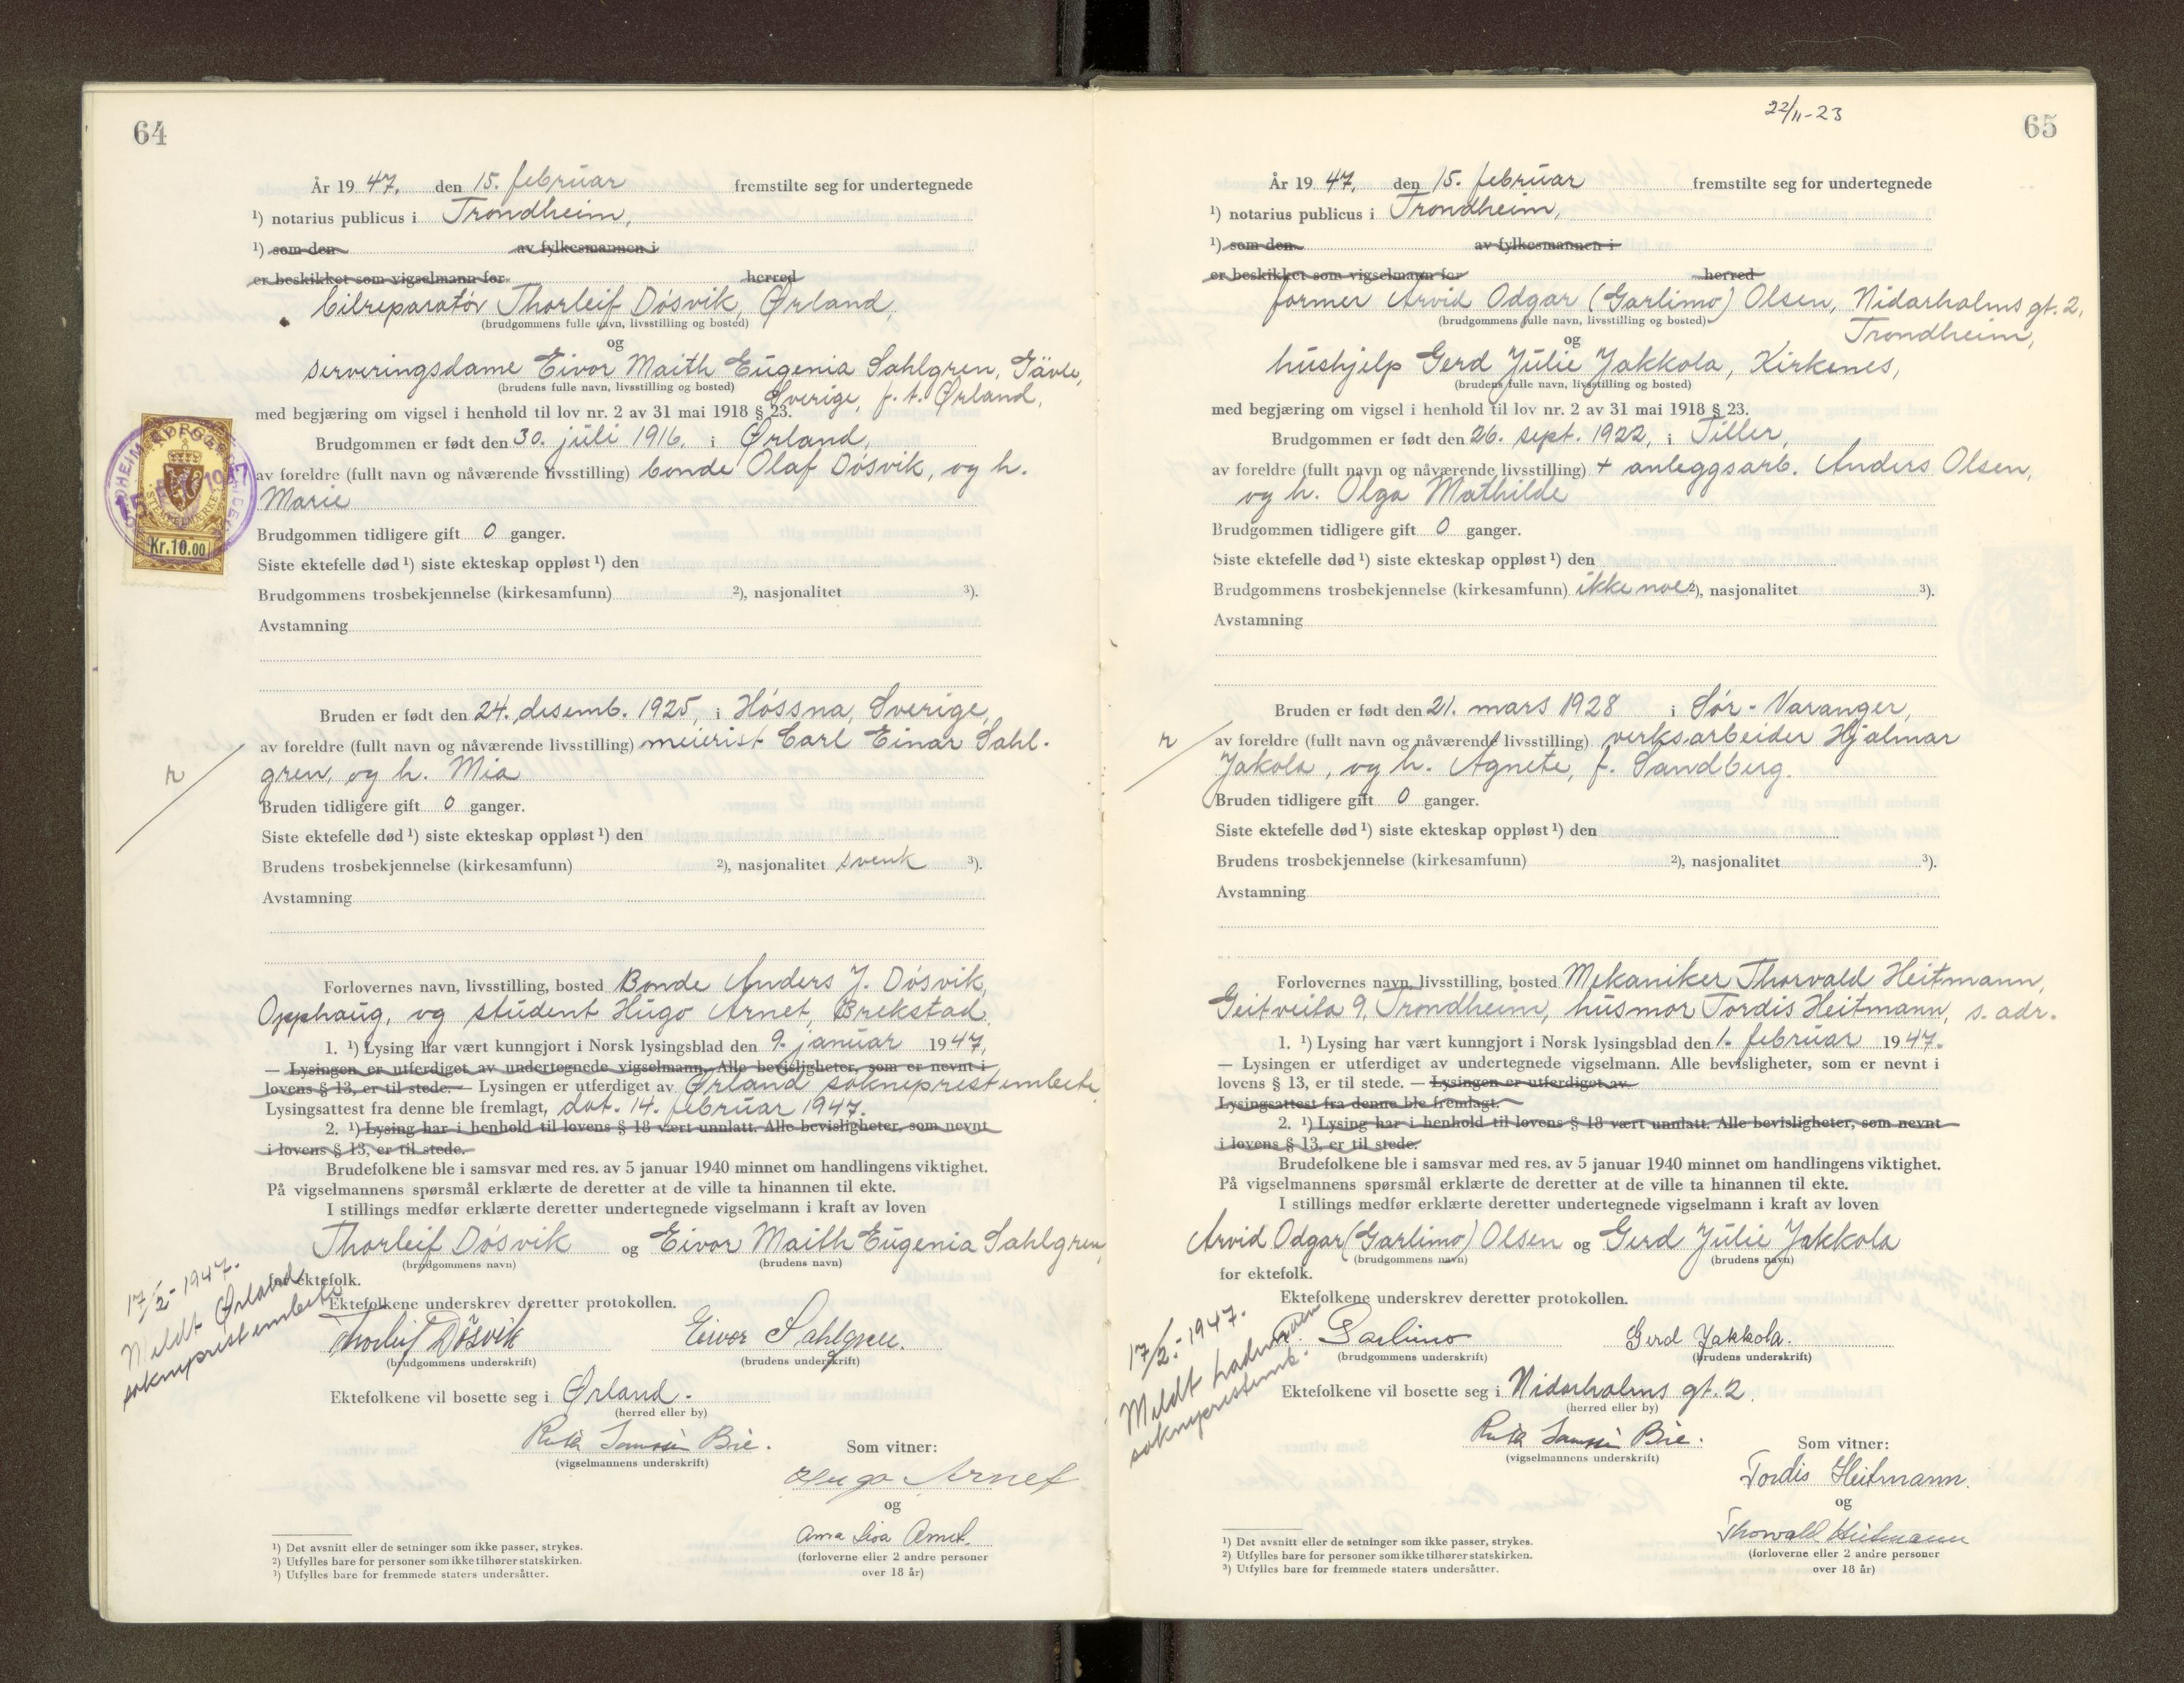 64
År 19 47. den 15. februar fremstilte seg for undertegnede
¹) notarius publicus i Trondheim,
¹) som den av fylkesmannen i
er beskikket som vigselmann for herred
bilreparatør Thorleif Døsvik, Ørland,
(brudgommens fulle navn, livsstilling og bosted)
og
serveringsdame Eivor Maith Eugenia Sahlgren, Gävle,
(brudens fulle navn, livsstilling og bosted) Sverige, f. t. Ørland,
med begjæring om vigsel i henhold til lov nr. 2 av 31 mai 1918 § 23.
Brudgommen er født den 30. juli 1916. i Ørland,
av foreldre (fullt navn og nåværende livsstilling) bonde Olaf Døsvik, og h.
Marie
STEMPELMERKE
Kr.10.00
Brudgommen tidligere gift 0 ganger.
Siste ektefelle død ¹) siste ekteskap oppløst ¹) den
Brudgommens trosbekjennelse (kirkesamfunn) ²), nasjonalitet ³).
Avstamning
Bruden er født den 24. desemb. 1925, i Hössna, Sverige,
av foreldre (fullt navn og nåværende livsstilling) meierist Carl Einar Sahl-
gren, og h. Mia
r
Bruden tidligere gift 0 ganger.
Siste ektefelle død ¹) siste ekteskap oppløst ¹) den
Brudens trosbekjennelse (kirkesamfunn) ²), nasjonalitet svenk ³).
Avstamning
Forlovernes navn, livsstilling, bosted Bonde Anders J. Døsvik,
Opphaug, og student Hugo Arnet, Brekstad.
1. ¹) Lysing har vært kunngjort i Norsk lysingsblad den 9. januar 1947,
— Lysingen er utferdiget av undertegnede vigselmann. Alle bevisligheter, som er nevnt i
lovens § 13, er til stede. — Lysingen er utferdiget av Ørland sokneprestembete.
Lysingsattest fra denne ble fremlagt, dat. 14. februar 1947.
2. ¹) Lysing har i henhold til lovens § 18 vært unnlatt. Alle bevisligheter, som nevnt
i lovens § 13, er til stede.
Brudefolkene ble i samsvar med res. av 5 januar 1940 minnet om handlingens viktighet.
På vigselmannens spørsmål erklærte de deretter at de ville ta hinannen til ekte.
I stillings medfør erklærte deretter undertegnede vigselmann i kraft av loven
Thorleif Døsvik og Eivor Maith Eugenia Sahlgren,
(brudgommens navn) (brudens navn)
for ektefolk.
17/2-1947.
Meldt Ørland
sokneprestembete
Ektefolkene underskrev deretter protokollen.
Thorleif Døsvik Eivor Sahlgren.
(brudgommens underskrift) (brudens underskrift)
Ektefolkene vil bosette seg i Ørland.
(herred eller by)
Bie. Som vitner:
(vigselmannens underskrift)
Hugo Arnet
og
Anna Arnet.
(forloverne eller 2 andre personer
over 18 år)
¹) Det avsnitt eller de setninger som ikke passer, strykes.
²) Utfylles bare for personer som ikke tilhører statskirken.
³) Utfylles bare for fremmede staters undersåtter.
22/11-23
65
År 19 47. den 15. februar fremstilte seg for undertegnede
¹) notarius publicus i Trondheim,
¹) som den av fylkesmannen i
er beskikket som vigselmann for herred
former Arvid Odgar (Garlimo) Olsen, Nidarholms gt. 2,
(brudgommens fulle navn, livsstilling og bosted) Trondheim,
og
hushjelp Gerd Julie Jakkola, Kirkenes,
(brudens fulle navn, livsstilling og bosted)
med begjæring om vigsel i henhold til lov nr. 2 av 31 mai 1918 § 23.
Brudgommen er født den 26. sept. 1922, i Tiller,
av foreldre (fullt navn og nåværende livsstilling) + anleggsarb. Anders Olsen,
og h. Olga Mathilde
Brudgommen tidligere gift 0 ganger.
Siste ektefelle død ¹) siste ekteskap oppløst ¹) den
Brudgommens trosbekjennelse (kirkesamfunn) ikke noe ²), nasjonalitet ³).
Avstamning
Bruden er født den 21. mars 1928 i Sør-Varanger,
r
av foreldre (fullt navn og nåværende livsstilling) verksarbeider Hjalmar
Jakola, og h. Agnete, f. Sandberg.
Bruden tidligere gift 0 ganger.
Siste ektefelle død ¹) siste ekteskap oppløst ¹) den
Brudens trosbekjennelse (kirkesamfunn) ²), nasjonalitet ³).
Avstamning
Forlovernes navn, livsstilling, bosted Mekaniker Thorvald Heitmann,
Geitveita 9, Trondheim, husmor Tordis Heitmann, s. adr.
1. ¹) Lysing har vært kunngjort i Norsk lysingsblad den 1. februar 1947.
— Lysingen er utferdiget av undertegnede vigselmann. Alle bevisligheter, som er nevnt i
lovens § 13, er til stede. — Lysingen er utferdiget av
Lysingsattest fra denne ble fremlagt.
2. ¹) Lysing har i henhold til lovens § 18 vært unnlatt. Alle bevisligheter, som nevnt
i lovens § 13, er til stede.
Brudefolkene ble i samsvar med res. av 5 januar 1940 minnet om handlingens viktighet.
På vigselmannens spørsmål erklærte de deretter at de ville ta hinannen til ekte.
I stillings medfør erklærte deretter undertegnede vigselmann i kraft av loven
Arvid Odgar (Garlimo) Olsen og Gerd Julie Jakkola
(brudgommens navn) (brudens navn)
for ektefolk.
17/2-1947.
Meldt Lademoen
sokneprestemb.
Ektefolkene underskrev deretter protokollen.
Garlimo Gerd Jakkola.
(brudgommens underskrift) (brudens underskrift)
Ektefolkene vil bosette seg i Nidarholms gt. 2.
(herred eller by)
Bie.
(vigselmannens underskrift) Som vitner:
Tordis Heitmann.
og
Thorvald Heitmann
(forloverne eller 2 andre personer
over 18 år)
¹) Det avsnitt eller de setninger som ikke passer, strykes.
²) Utfylles bare for personer som ikke tilhører statskirken.
³) Utfylles bare for fremmede staters undersåtter.